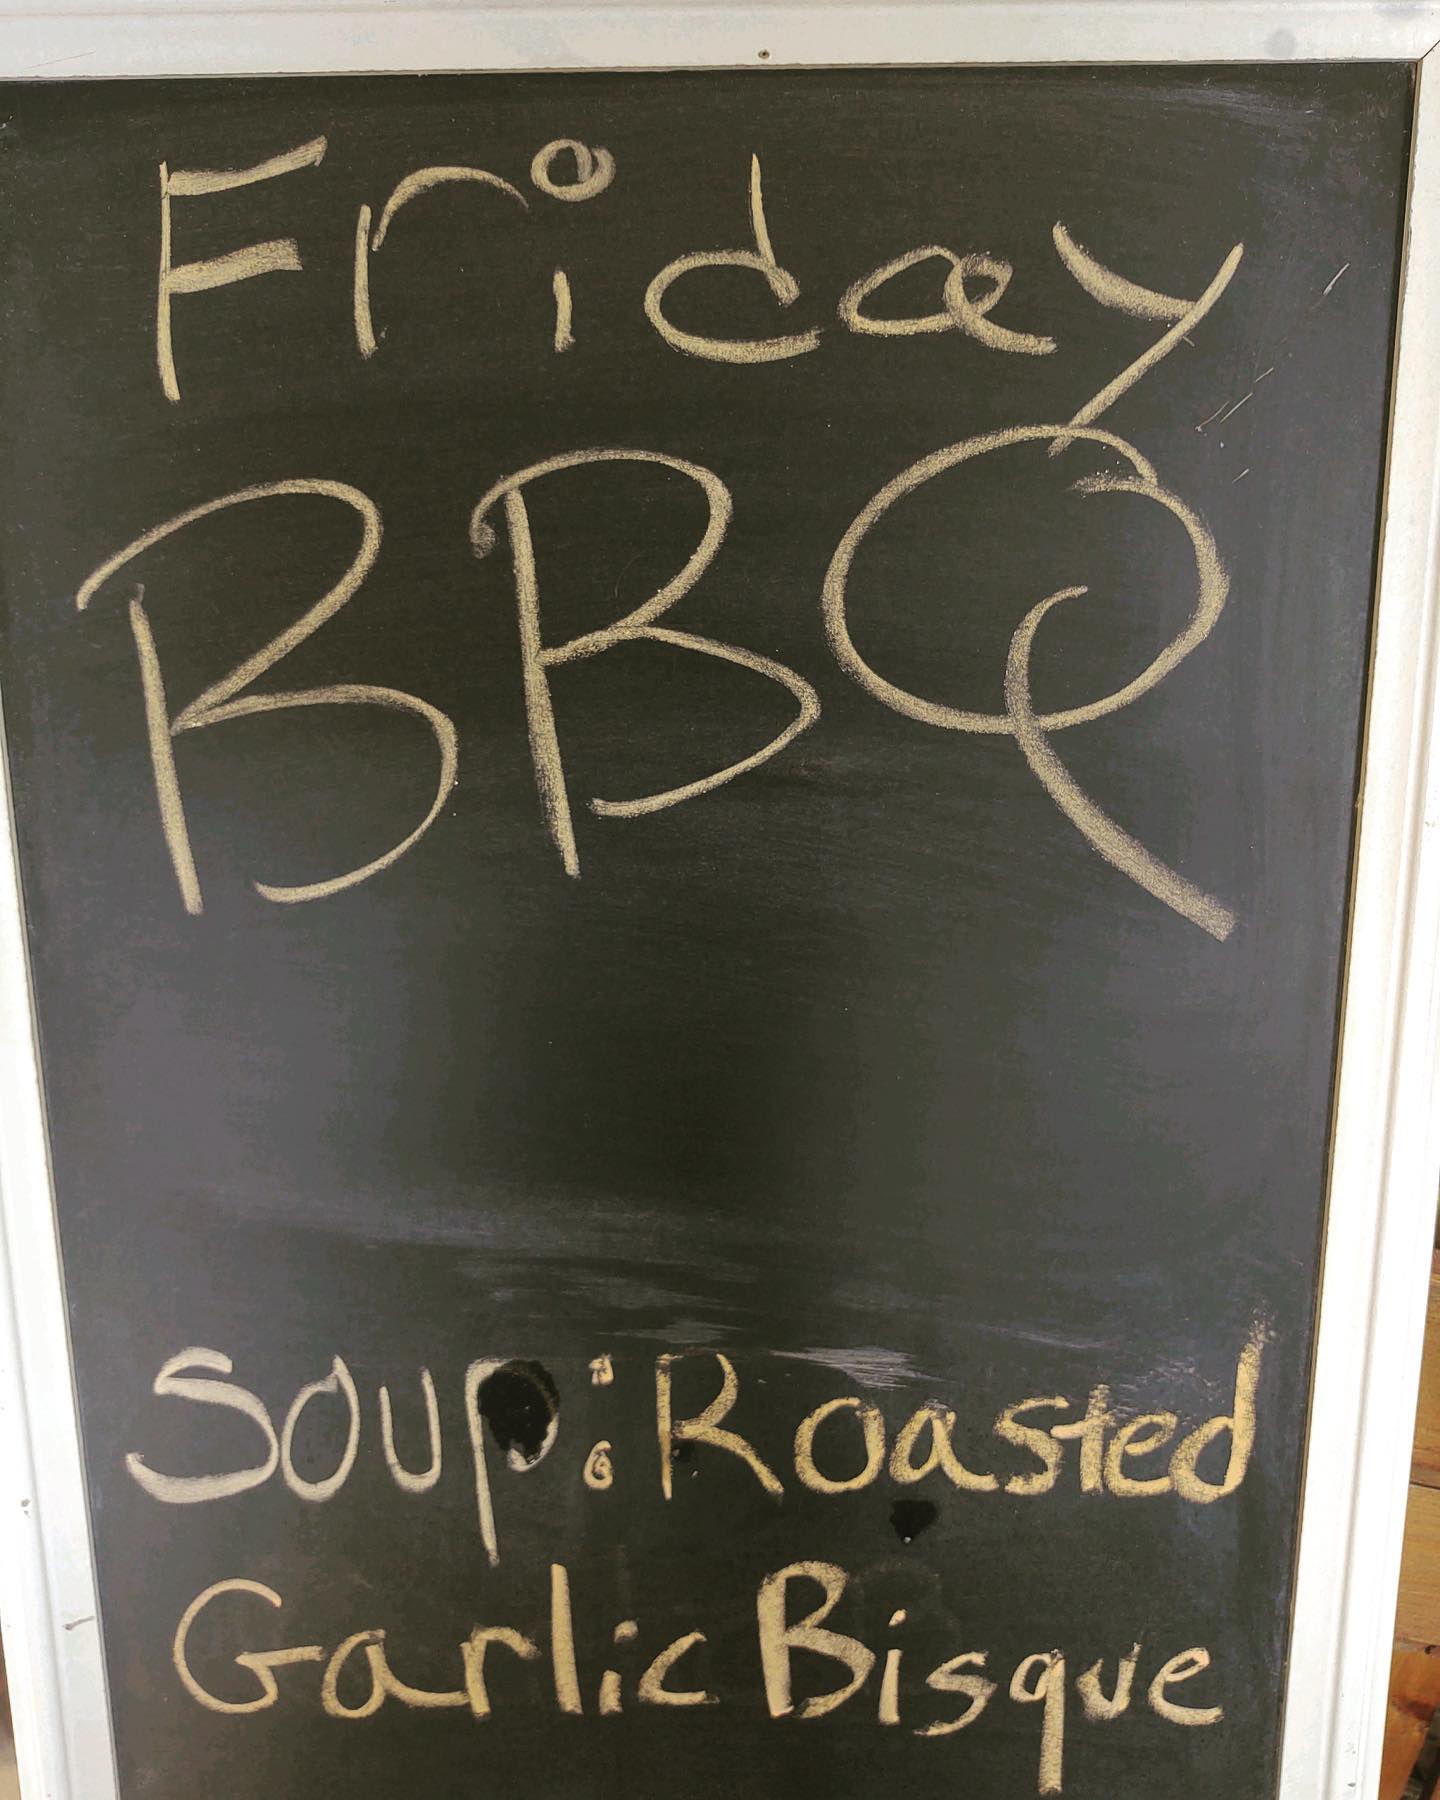 Friday
BBQ
Soup: Roasted
Garlic Bisque